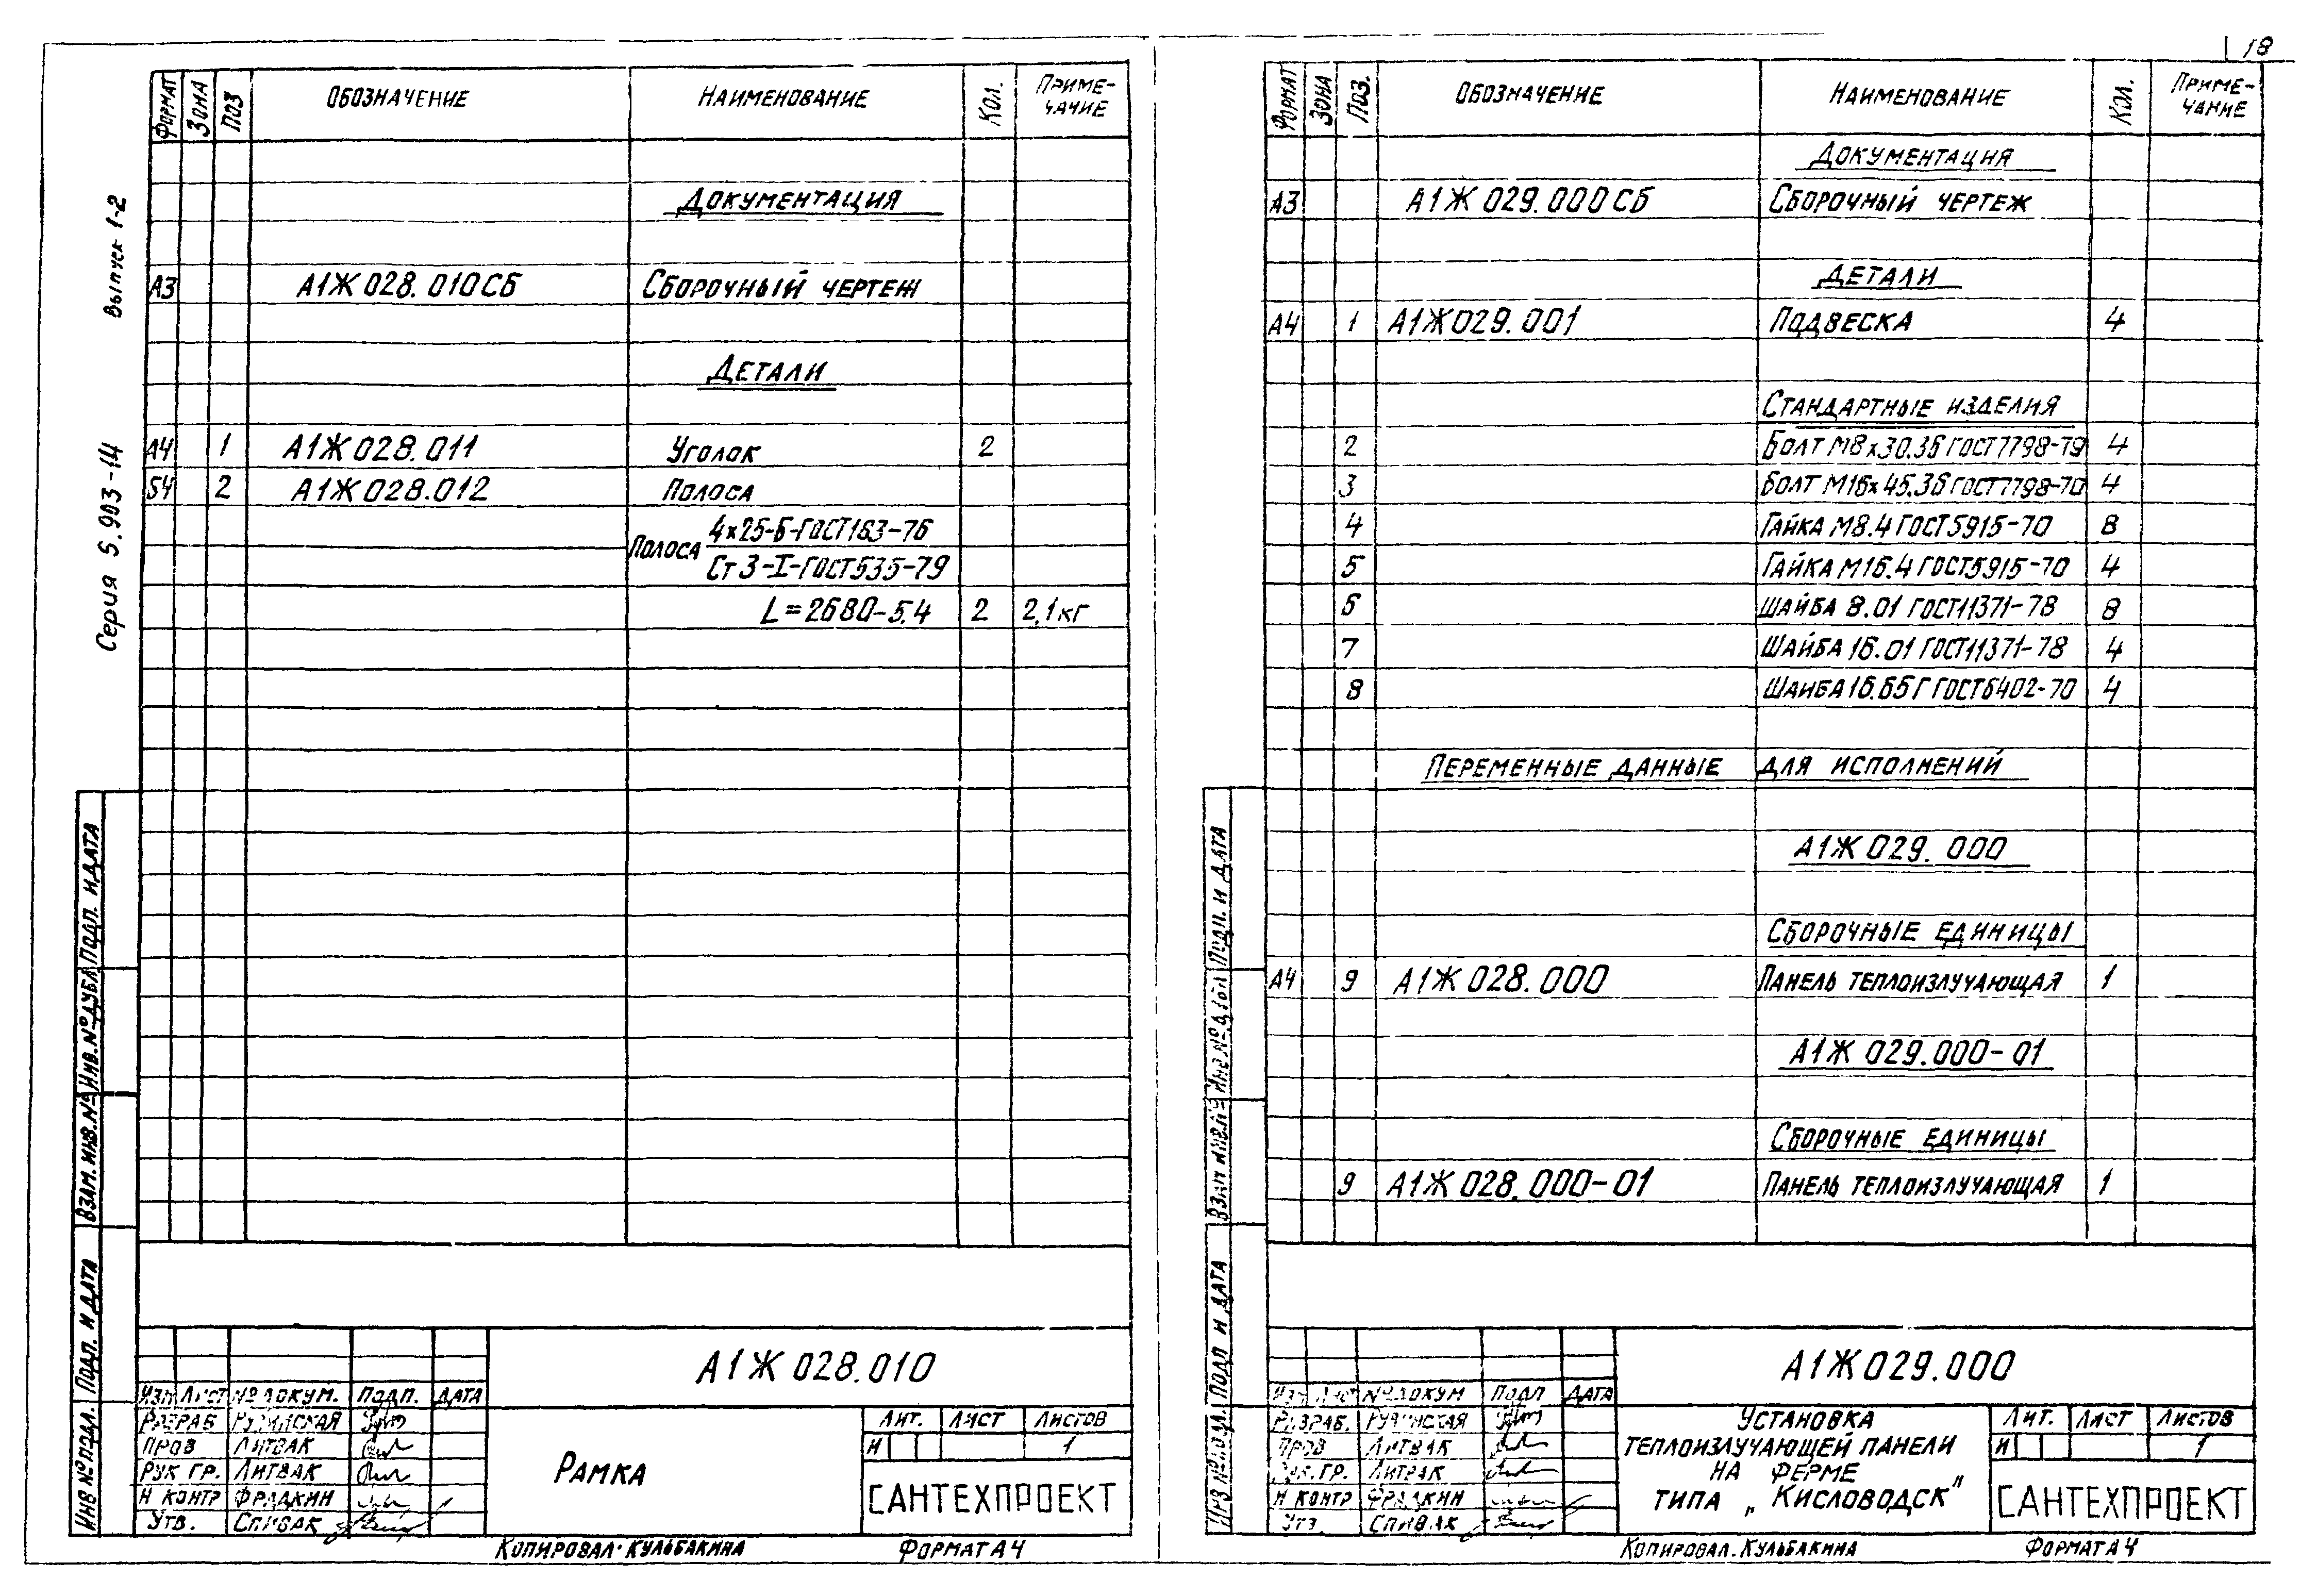 18
Выпуск 1-2
Серия 5.903-14
ФОРМАТ ЗОНА ПОЗ ОБОЗНАЧЕНИЕ НАИМЕНОВАНИЕ КОЛ. ПРИМЕ-
ЧАЧИЕ
ДОКУМЕНТАЦИЯ
А3 А1Ж 028.010СБ СБОРОЧНЫЙ ЧЕРТЕЖ
ДЕТАЛИ
А4 1 А1Ж 028.011 УГОЛОК 2
Б4 2 А1Ж 028.012 ПОЛОСА
ПОЛОСА 4×25-Б-ГОСТ103-76
Ст 3-I-ГОСТ535-79
L=2680-5,4 2 2,1кг
ПОДП. И ДАТА
ИНВ.№ДУБЛ
ВЗАМ.ИНВ.№
ПОДП. И ДАТА
ИНВ №ПОДЛ.
А1Ж 028.010
ИЗМ ЛИСТ №ДОКУМ. ПОДП. ДАТА
РАЗРАБ РУЧИНСКАЯ
ПРОВ ЛИТВАК
РУК ГР. ЛИТВАК
Н КОНТР ФРАДКИН
УТВ. СПИВАК
РАМКА
ЛИТ. ЛИСТ ЛИСТОВ
И 1
САНТЕХПРОЕКТ
КОПИРОВАЛ·КУЛЬБАКИНА ФОРМАТ А4
ФОРМАТ ЗОНА ПОЗ. ОБОЗНАЧЕНИЕ НАИМЕНОВАНИЕ КОЛ. ПРИМЕ-
ЧАНИЕ
ДОКУМЕНТАЦИЯ
А3 А1Ж 029.000СБ СБОРОЧНЫЙ ЧЕРТЕЖ
ДЕТАЛИ
А4 1 А1Ж029.001 ПОДВЕСКА 4
СТАНДАРТНЫЕ ИЗДЕЛИЯ
2 БОЛТ М8×30.36 ГОСТ7798-79 4
3 БОЛТ М16×45.36 ГОСТ7798-70 4
4 ГАЙКА М8.4 ГОСТ5915-70 8
5 ГАЙКА М16.4 ГОСТ5915-70 4
6 ШАЙБА 8.01 ГОСТ11371-78 8
7 ШАЙБА 16.01 ГОСТ11371-78 4
8 ШАЙБА 16.65Г ГОСТ6402-70 4
ПЕРЕМЕННЫЕ ДАННЫЕ ДЛЯ ИСПОЛНЕНИЙ
А1Ж 029.000
СБОРОЧНЫЕ ЕДИНИЦЫ
А4 9 А1Ж 028.000 ПАНЕЛЬ ТЕПЛОИЗЛУЧАЮЩАЯ 1
А1Ж 029.000-01
СБОРОЧНЫЕ ЕДИНИЦЫ
9 А1Ж 028.000-01 ПАНЕЛЬ ТЕПЛОИЗЛУЧАЮЩАЯ 1
ПОДП. И ДАТА
ПОДП И ДАТА
А1Ж029.000
ИЗМ ЛИСТ №ДОКУМ ПОДП ДАТА
РАЗРАБ. РУЧИНСКАЯ
ПРОВ ЛИТВАК
РУК.ГР. ЛИТВАК
Н КОНТР ФРАДКИН
УТВ. СПИВАК
УСТАНОВКА
ТЕПЛОИЗЛУЧАЮЩЕЙ ПАНЕЛИ
НА ФЕРМЕ
ТИПА „КИСЛОВОДСК"
ЛИТ. ЛИСТ ЛИСТОВ
И 1
САНТЕХПРОЕКТ
КОПИРОВАЛ. КУЛЬБАКИНА ФОРМАТ А4